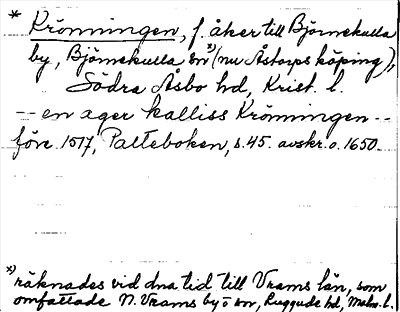 * Krönningen, f. åker till Björnekulla
by, Björnekulla sn x) (nu Åstorps köping),
Södra Åsbo hd, Krist. l.
-- en ager kalliss Krönningen --
före 1517, Palteboken, s. 45. avskr. o. 1650.
x) räknades vid dna tid till Vrams län, som
omfattade N. Vrams by o sn, Luggude hd, Malm. l.